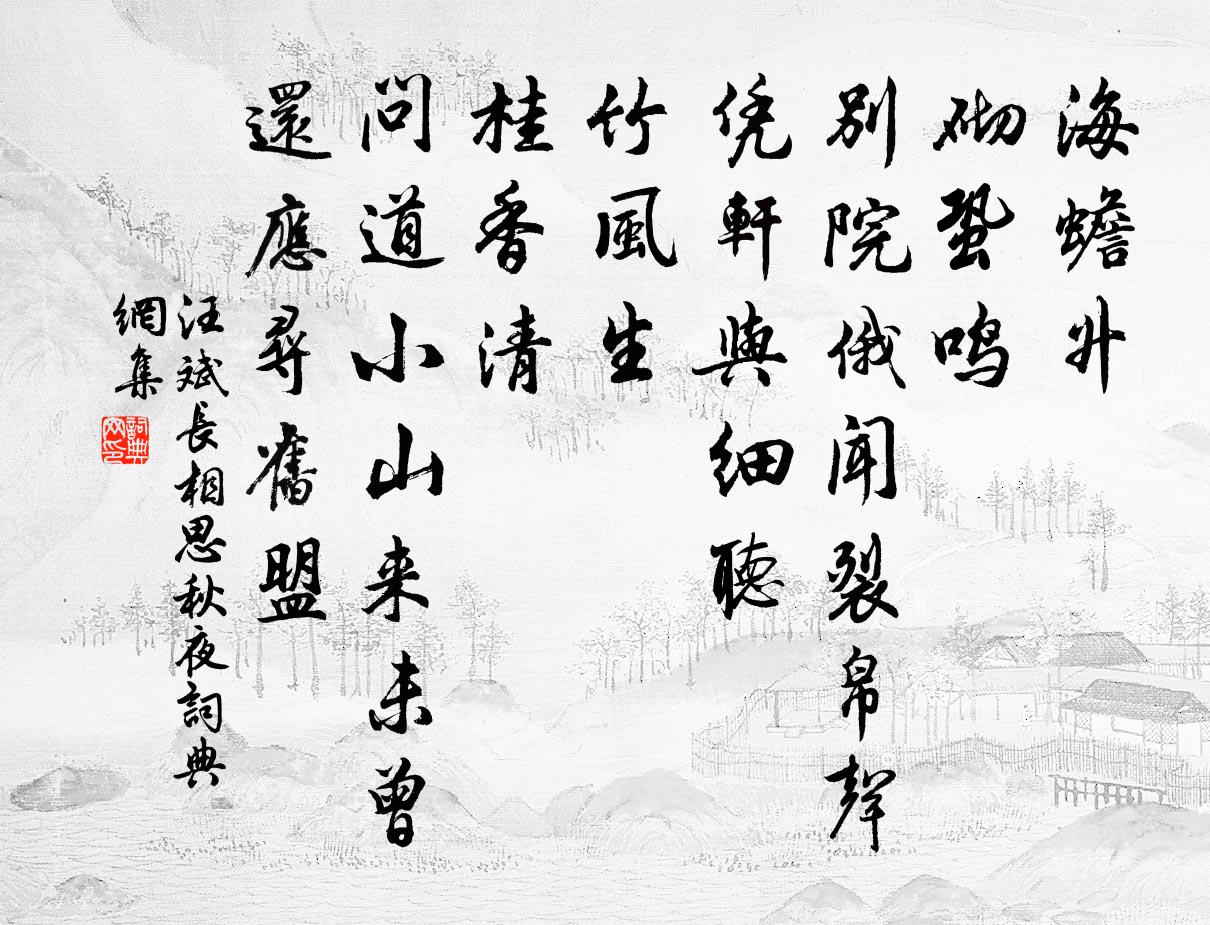 海蟾升
砌蛩鳴
別院俄聞裂帛聲
凭軒與細聽
竹風生
桂香清
問道小山来未曾
還應尋舊盟
汪斌長相思秋夜詞典
網集
詞典
网印